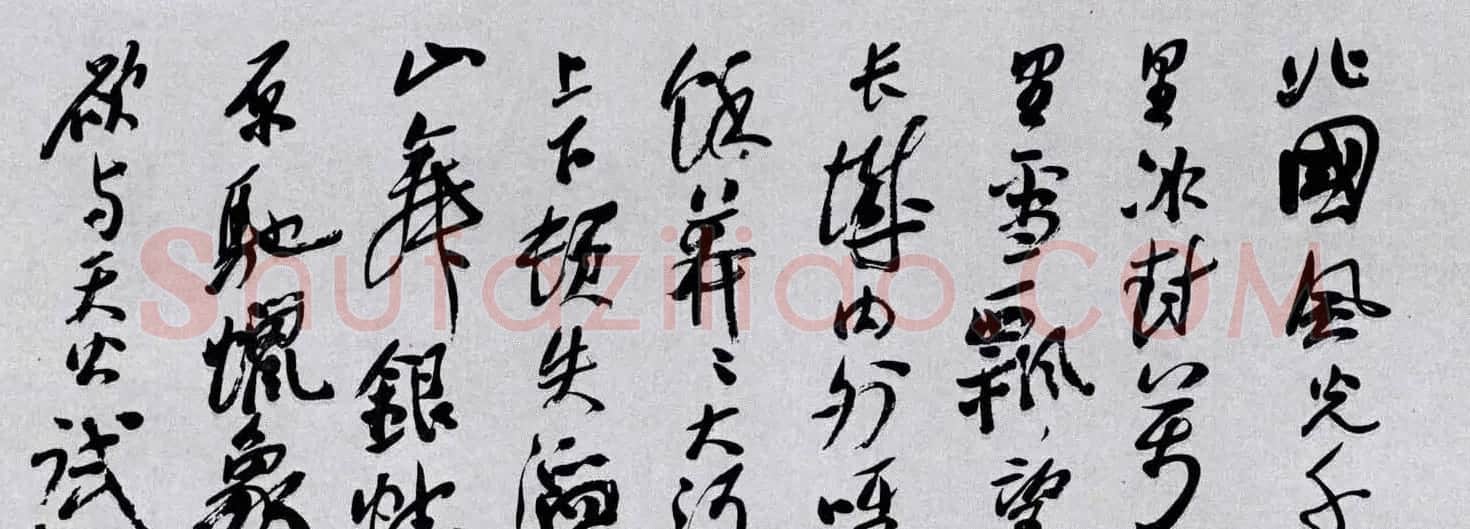 北國風光千
里冰封萬
里雪飄望
长城内外唯
馀莽〻大河
上下顿失滔
山舞銀蛇
原馳蠟象
欲与天公试
Shufaziliao.COM